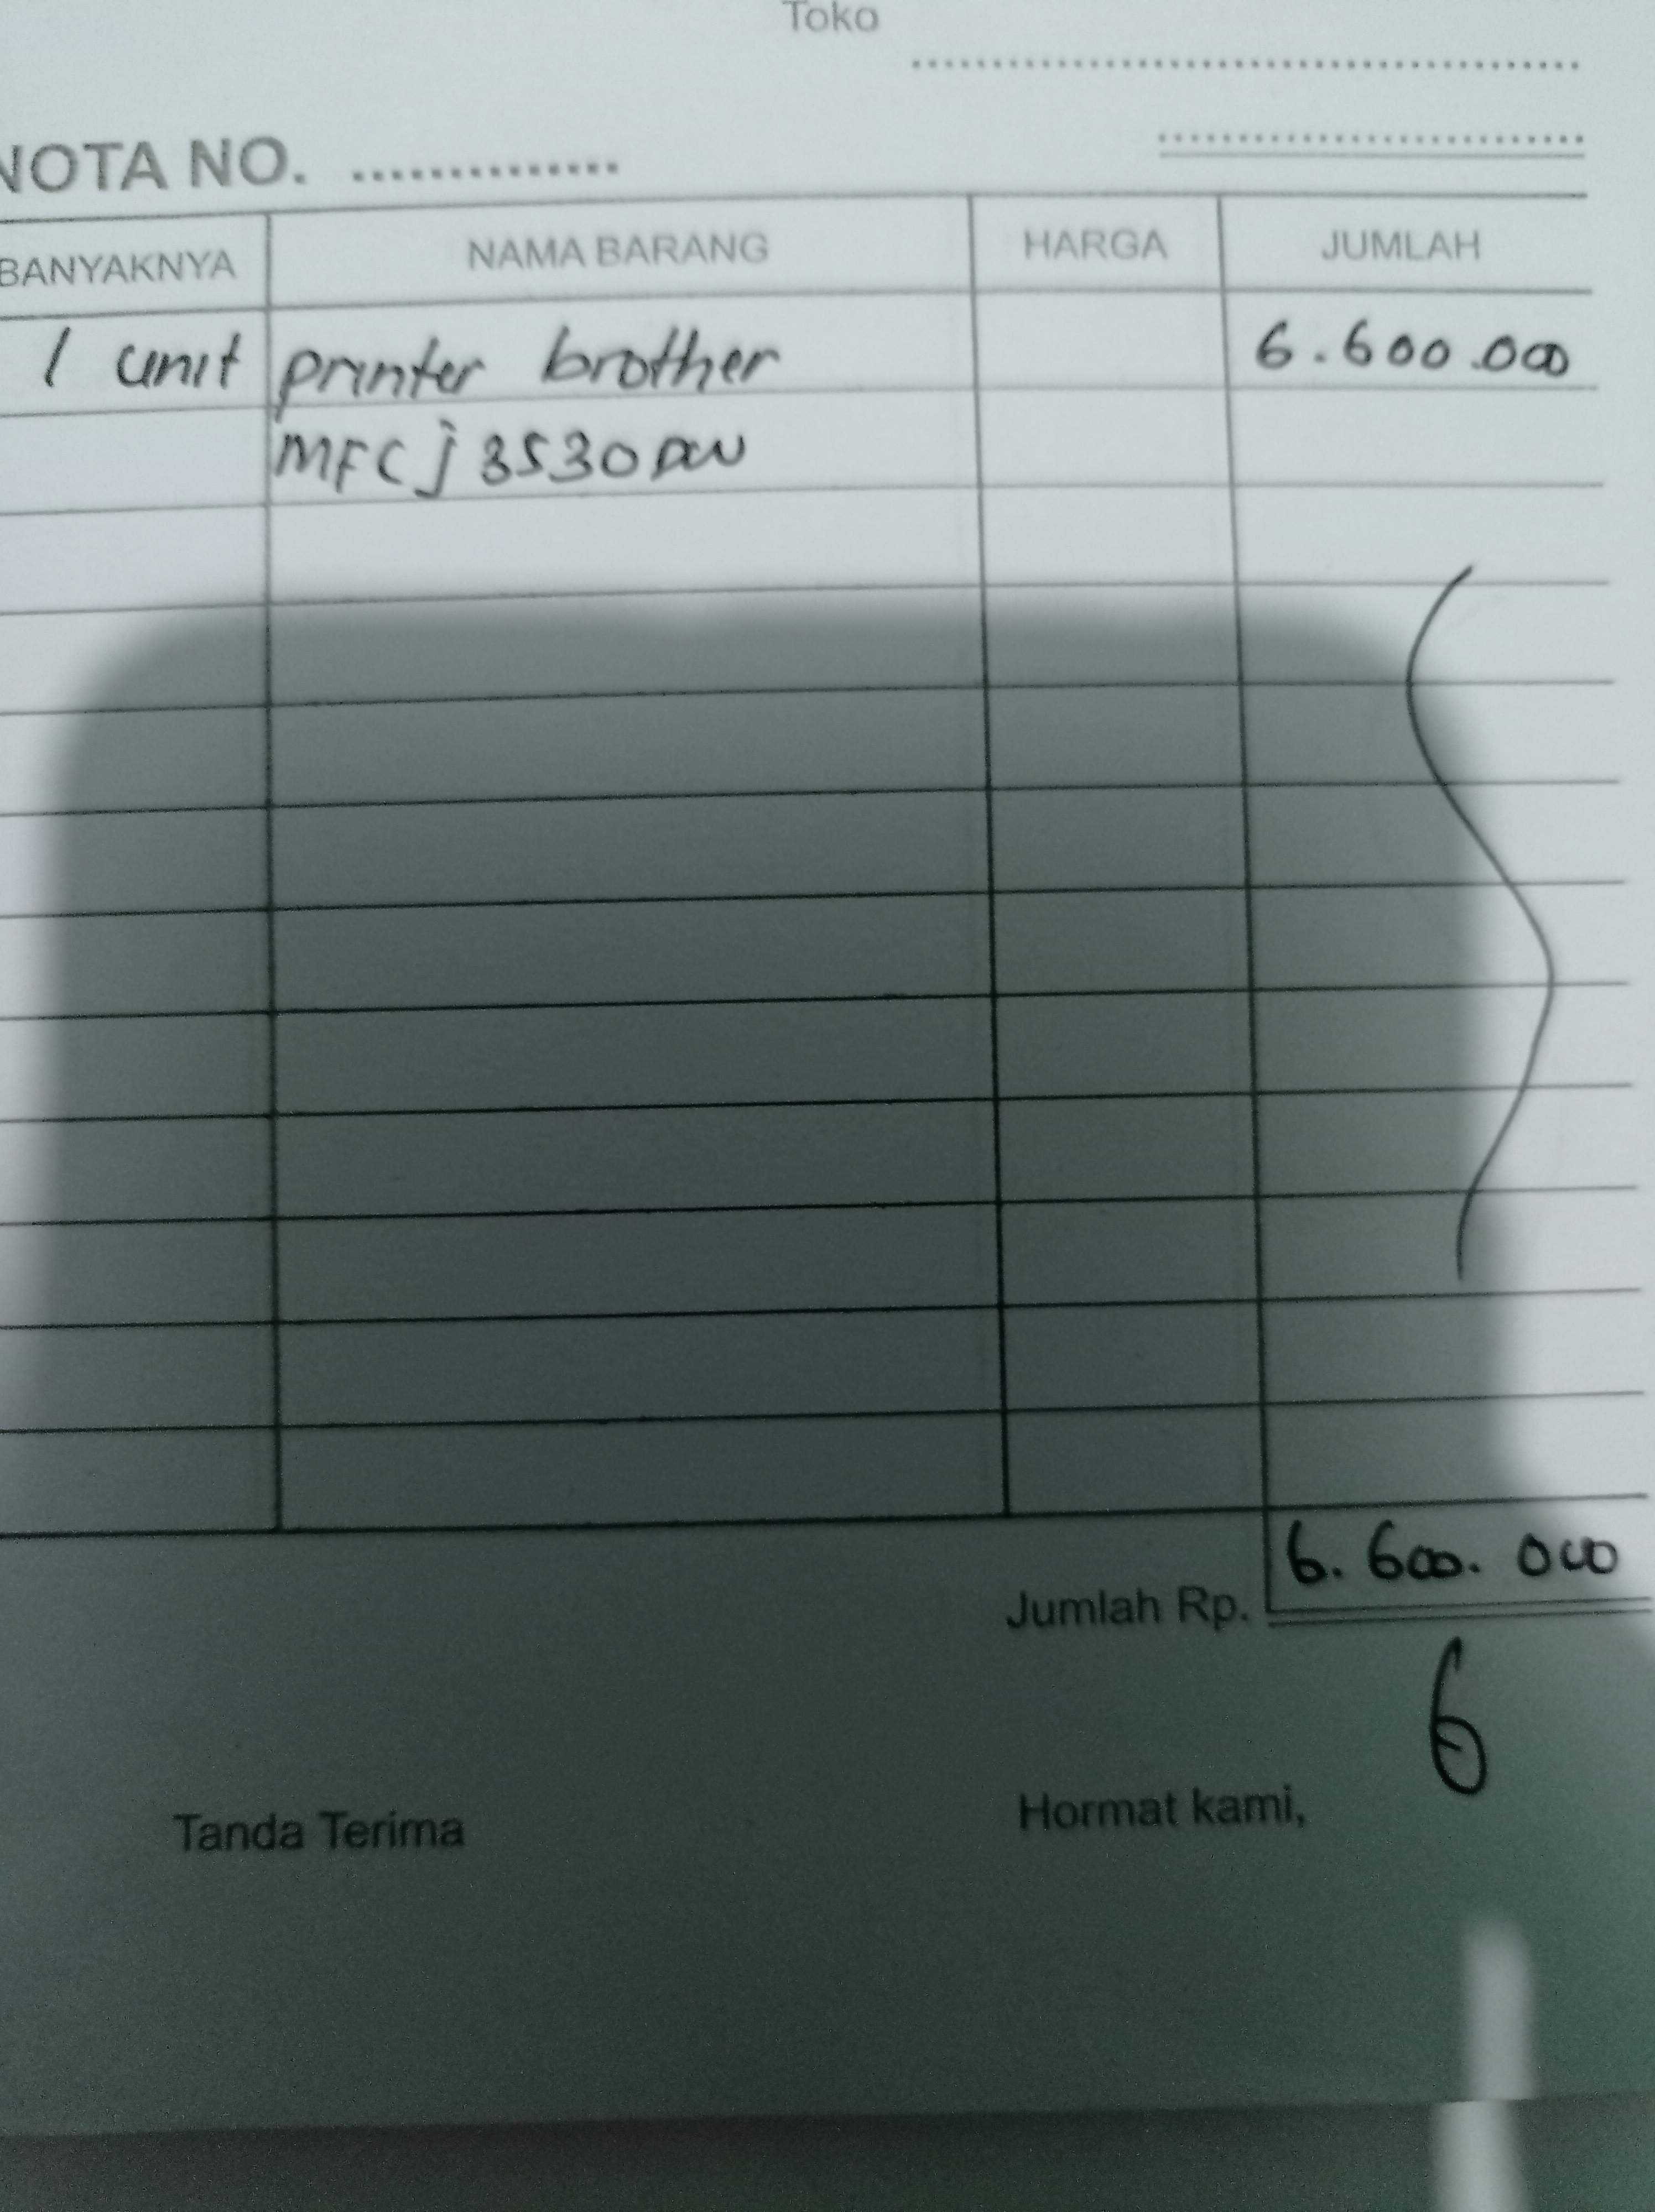 Toko
NOTA NO.
BANYAKNYA NAMA BARANG HARGA JUMLAH
1 unit printer brother 6.600.000
MFC j 3530 DW
Jumlah Rp. 6.600.000
Tanda Terima Hormat kami,